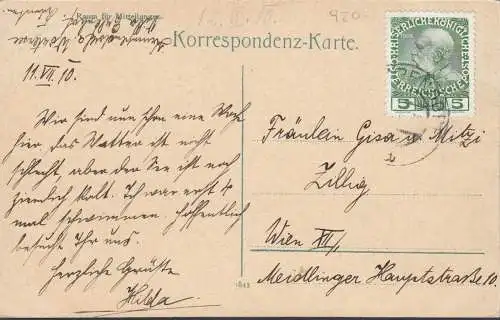 Raum für Mitteilungen
Korrespondenz-Karte.
920.-
11. VII. 10.
Wir sind nun schon eine Woche
hier, das Wetter ist nicht
schlecht, aber der See ist noch
ziemlich kalt. Ich war erst 4
mal schwimmen. Hoffentlich
besucht Ihr uns.
Herzliche Grüße
Hilda
Fräulein Gisa u Mitzi
Zillig
Wien XII,
Meidlinger Hauptstraße 10.
5 5